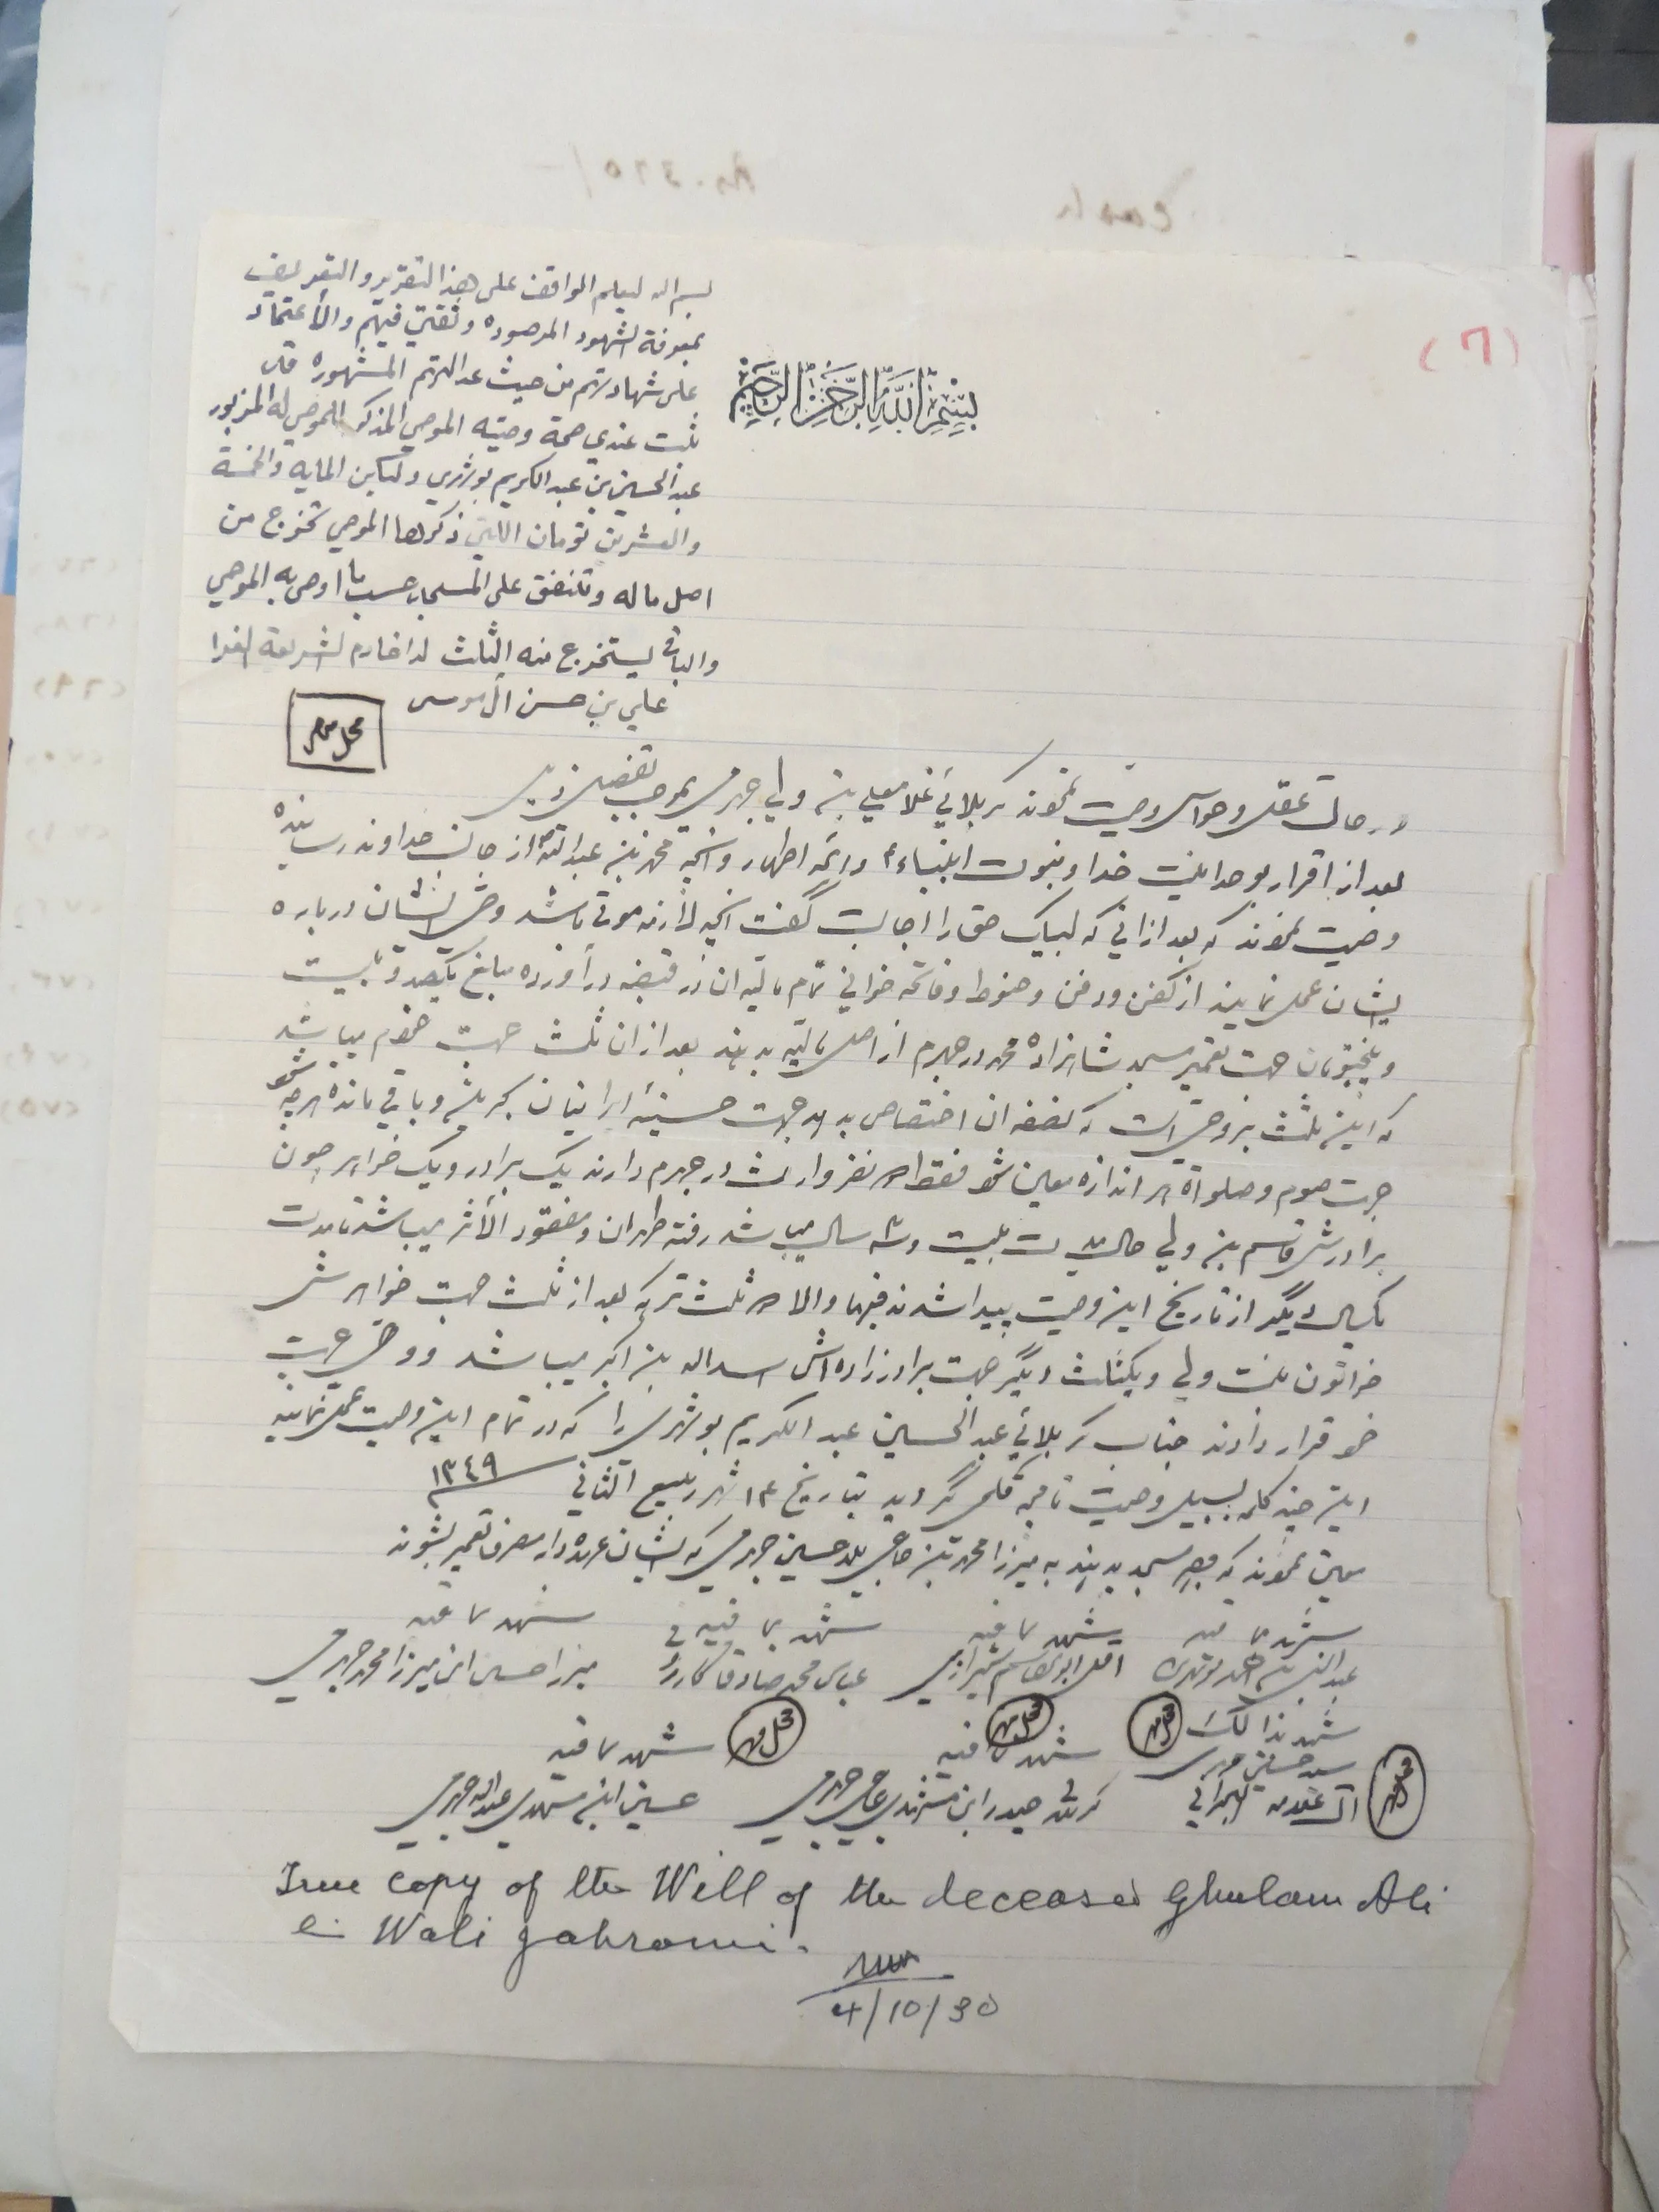 (٦)
بسم الله الرحمن الرحيم
بسم اله ليعلم الواقف على هذا التقرير والتعريف
بمعرفة الشهود المرصوده وثقتي فيهم والأعتماد
على شهادتهم من حيث عدالتهم المشهوره قد
ثبت عندي صحة وصيته الموصي المذكور للموصي له المزبور
عبد الحسين بن عبد الكريم بوشهري ولكن المايه والخمسة
والعشرين تومان اللتي ذكرها الموصي تخرج من
اصل ماله وتنفق على المسجد حسب ما اوصى به الموصي
والباقي يستخرج منه الثلث خادم الشريعة الغرا
علي بن حسن آل موسى
محل مهر
در حالت عقل وحواس وصيت نمودند كربلائي غلامعلي بن ولي جهرمي بموجب تفصيل ذيل
بعد از اقرار بوحدانيت خدا وبنبوت انبياء وائمه اطهار وآنچه محمد بن عبدالله از جانب خداوند رسانيده
وصيت نمودند كه بعد از اني كه لبيك حق را اجابت گفت آنچه لازمه موتى باشد وصى ايشان درباره
ايشان عمل نمايند از كفن ودفن وحنوط وفاتحه خواني تمام ماليه ان در قبضه درآورده مبلغ يكصد وبيست
وپنجتومان جهت تعمير مسجد شاهزاده محمد در جهرم از اصل ماليه بدهند بعد از ان ثلث جهت خودم ميباشد
كه اين ثلث نيز وصى است كه نصفه ان اختصاص بدهد جهت حسينيه ايرانيان بحرين وباقي مانده هرچه شود
جهت صوم وصلواة هر اندازه معين شود فقط نفر وارث در جهرم دارند يك برادر ويك خواهر چون
برادرش قاسم بن ولي حال مدت بيست وسه سال ميباشد رفته طهران ومفقود الأثر ميباشد تا مدت
يكسال ديگر از تاريخ اين وصيت پيدا شدند فبها والا ثلث تركه بعد از ثلث جهت خواهرش
خواتون بنت ولي ويكثلث ديگر جهت برادرزاده اش اسداله بن اكبر ميباشد ووصى جهت
خود قرار دادند جناب كربلائي عبد الحسين عبد الكريم بوشهرى را كه در تمام اين وصيت عمل نمايند
اين چند كلمه بسبيل وصيت نامچه قلمى گرديد بتاريخ ١٣ شهر ربيع الثاني ١٣٤٩
معين نمودند كه وجه مسجد بدهند به ميرزا محمد بن حاجي حسين جهرمي كه ايشان عهده دار مصرف تعمير بشوند
شهد بما فيه شهد بما فيه شهد بما فيه شهد بما فيه
عبد النبي احمد بوشهرى اقل ابوالقاسم شيرازي عباس محمد صادق ميرزا حسين ابن ميرزا محمد جهرمي
شهد بذالك محل مهر محل مهر شهد بما فيه محل مهر شهد بما فيه
سيد حسين
البحراني محل مهر حيدر ابن مشهدي جهرمي حسين ابن مشهدي عبداله جهرمي
True copy of the Will of the deceased Ghulam Ali
Wali Jahromi.
4/10/30